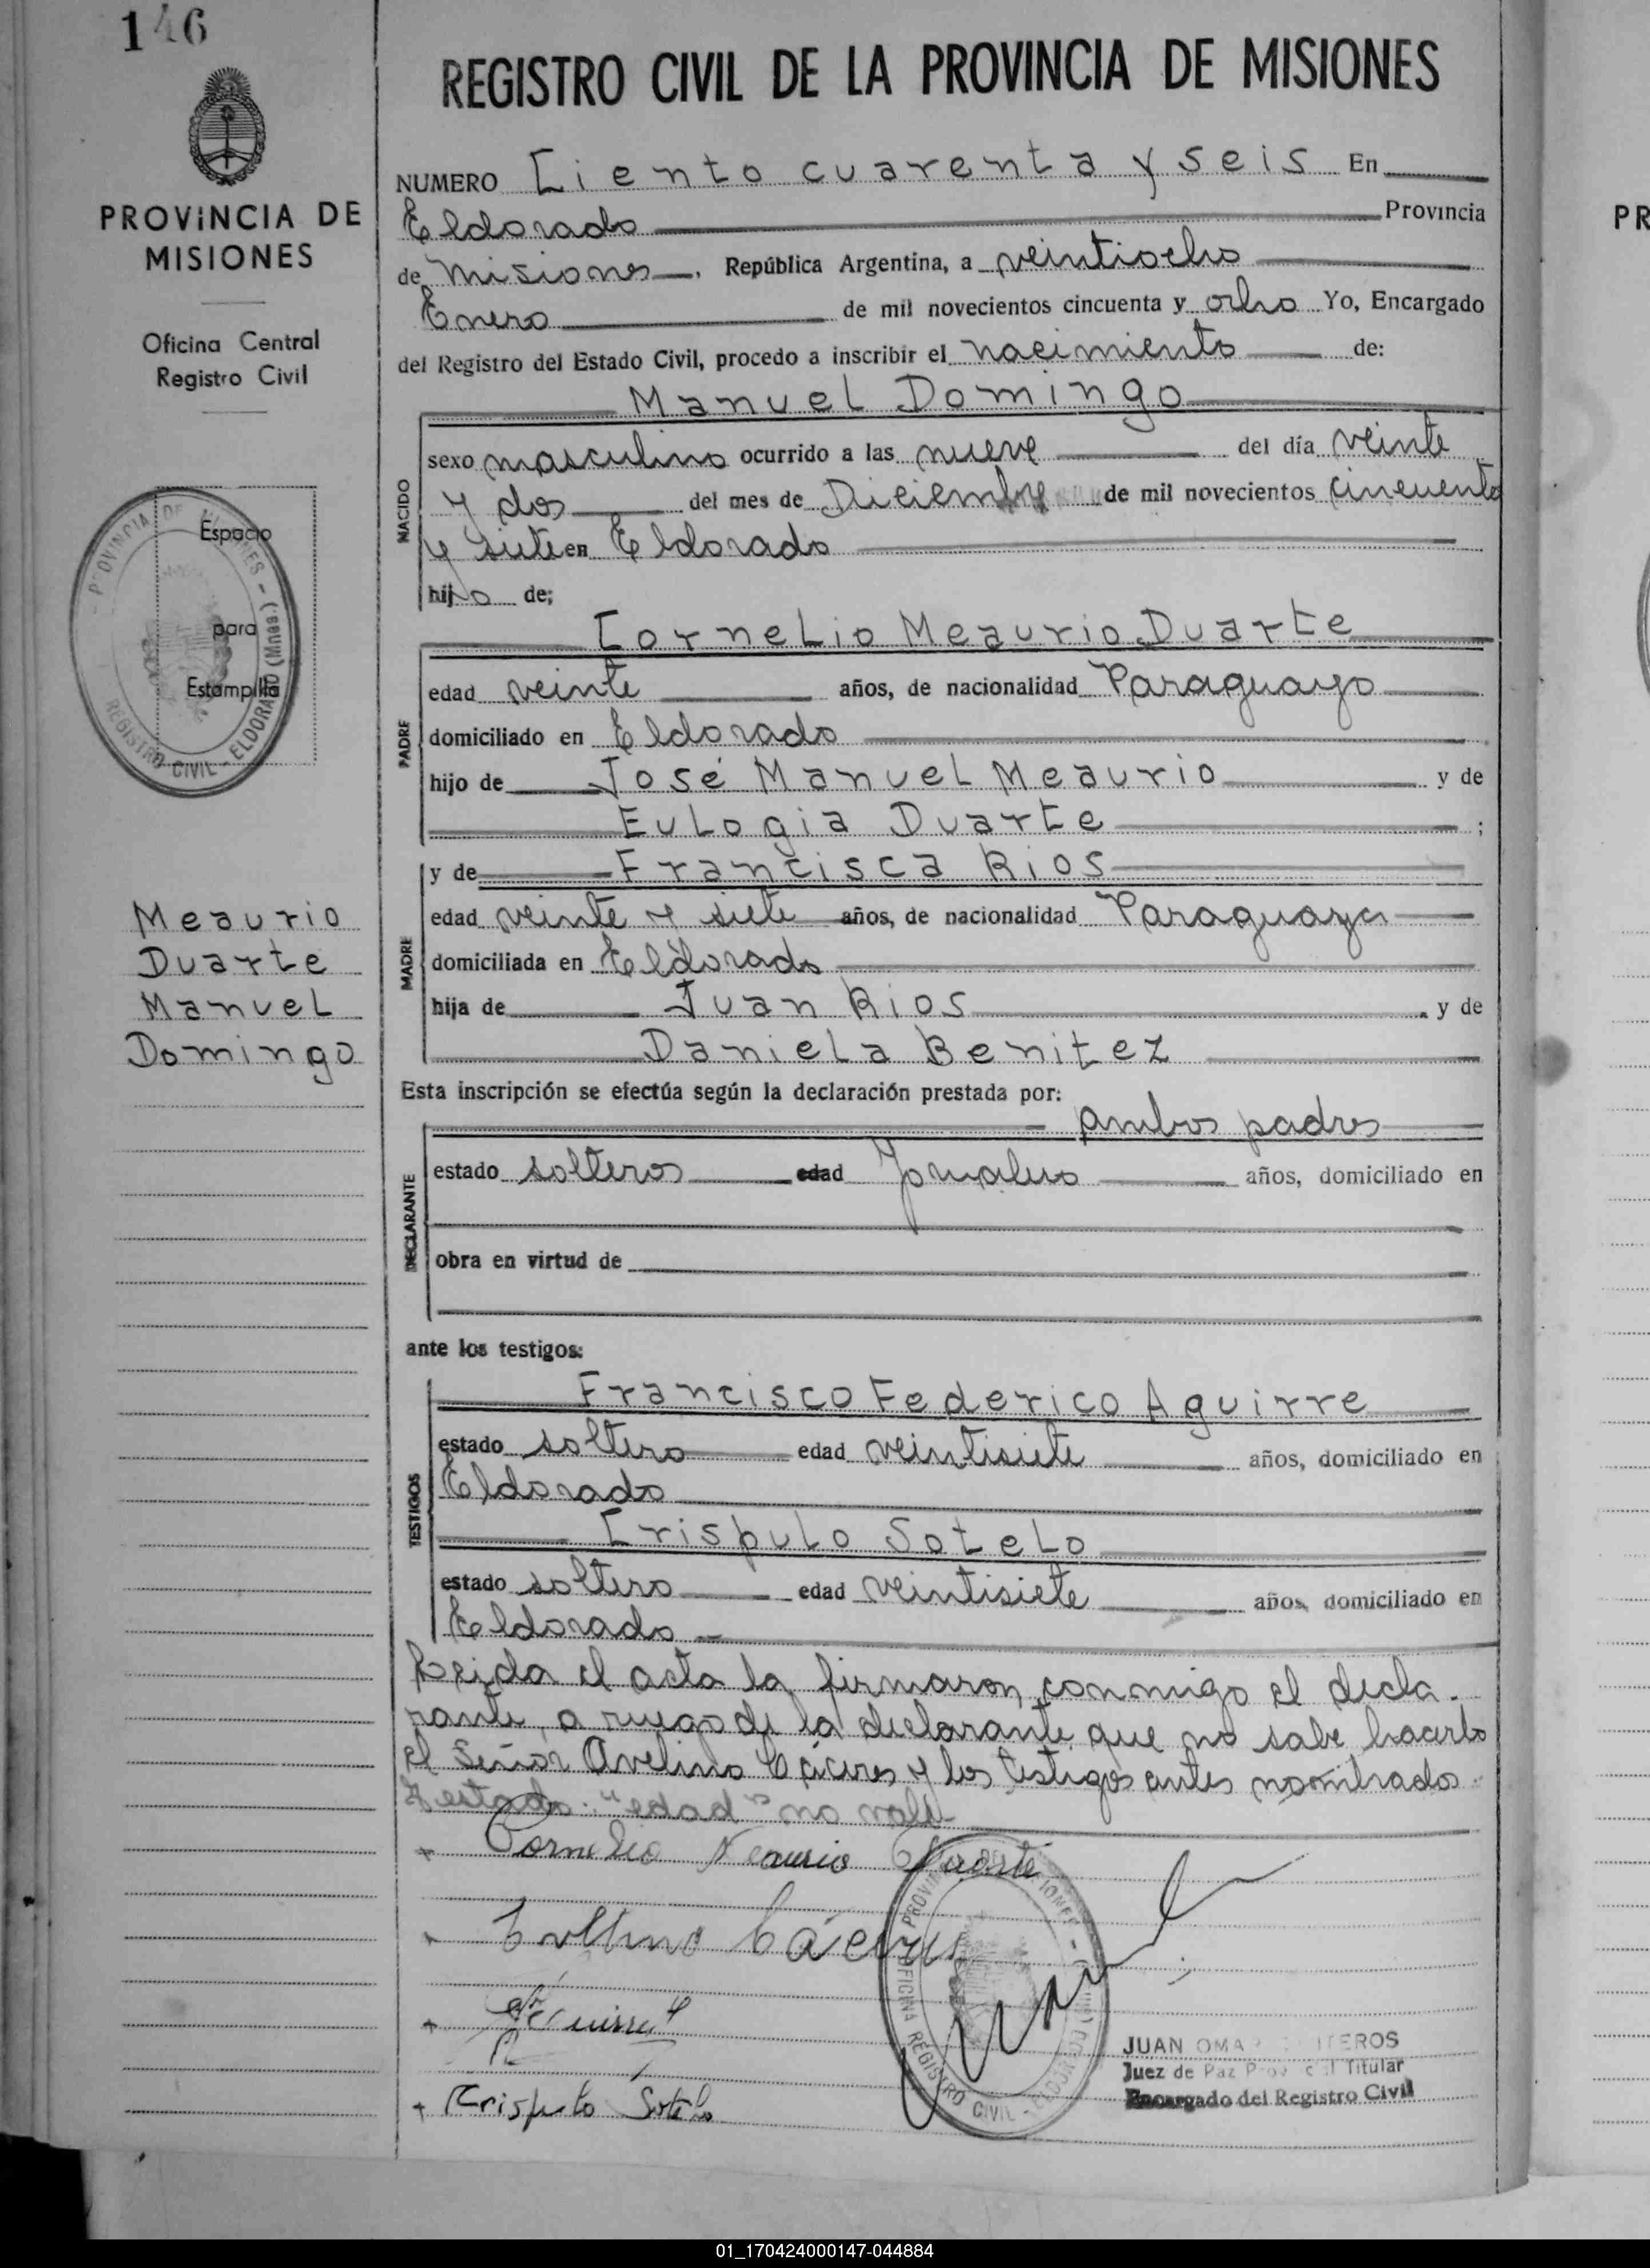 146
REGISTRO CIVIL DE LA PROVINCIA DE MISIONES
PROVINCIA DE
MISIONES
Oficina Central
Registro Civil
Espacio
para
Estampilla
PROVINCIA DE MISIONES - REGISTRO CIVIL - ELDORADO (Mnes.)
Meaurio
Duarte
Manuel
Domingo
NUMERO Ciento cuarenta y seis En
Eldorado Provincia
de Misiones, República Argentina, a veintiocho
Enero de mil novecientos cincuenta y ocho Yo, Encargado
del Registro del Estado Civil, procedo a inscribir el nacimiento de:
Manuel Domingo
NACIDO
sexo masculino ocurrido a las nueve del día veinte
y dos del mes de Diciembre de mil novecientos cincuenta
y siete en Eldorado
hijo de;
Cornelio Meaurio Duarte
PADRE
edad veinte años, de nacionalidad Paraguayo
domiciliado en Eldorado
hijo de José Manuel Meaurio y de
Eulogia Duarte ;
y de Francisca Rios
MADRE
edad veinte y siete años, de nacionalidad Paraguaya
domiciliada en Eldorado
hija de Juan Rios y de
Daniela Benitez
Esta inscripción se efectúa según la declaración prestada por:
ambos padres
DECLARANTE
estado solteros edad Jornalero años, domiciliado en
obra en virtud de
ante los testigos:
Francisco Federico Aguirre
TESTIGOS
estado soltero edad veintisiete años, domiciliado en
Eldorado
Crispulo Sotelo
estado soltero edad veintisiete años, domiciliado en
Eldorado
Leida el acta la firmaron conmigo el decla-
rante, a ruego de la declarante que no sabe hacerlo
el Señor Avelino Cáceres y los testigos antes nombrados.
Testado: "edad" no vale
Cornelio Meaurio Duarte
Cáceres
Aguirre
Crispulo Sotelo
JUAN OMA
Juez de Paz Titular
Encargado del Registro Civil
PR
01_170424000147-044884